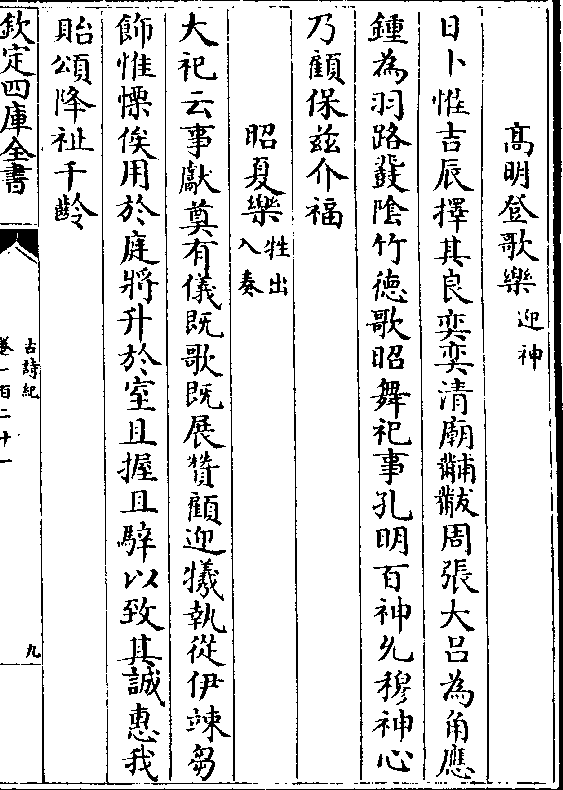 高明登歌樂迎神
日卜惟吉辰擇其良奕奕清廟黼黻周張大呂為角應
鍾為羽路鼗陰竹德歌昭舞祀事孔明百神允穆神心
乃顧保茲介福
昭夏樂牲出入奏
大祀云事獻奠有儀既歌既展贊顧迎犧執從伊竦芻
飾惟慄俟用於庭將升於室且握且騂以致其誠惠我
貽頌降祉千齡
欽定四庫全書
古詩紀
卷一百二十一
九